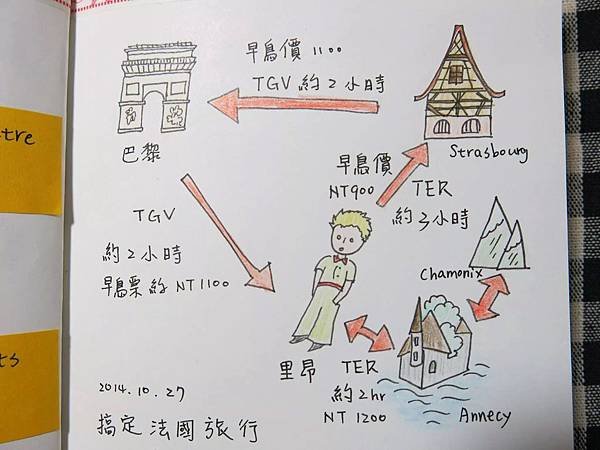 早鳥價 1100
TGV 約 2 小時
巴黎
Strasbourg
早鳥價
NT900
TER
約 3 小時
TGV
約 2 小時
早鳥票約 NT 1100
Chamonix
里昂
TER
約 2hr
NT 1200
Annecy
2014.10.27
搞定 法國 旅行
tre
ts